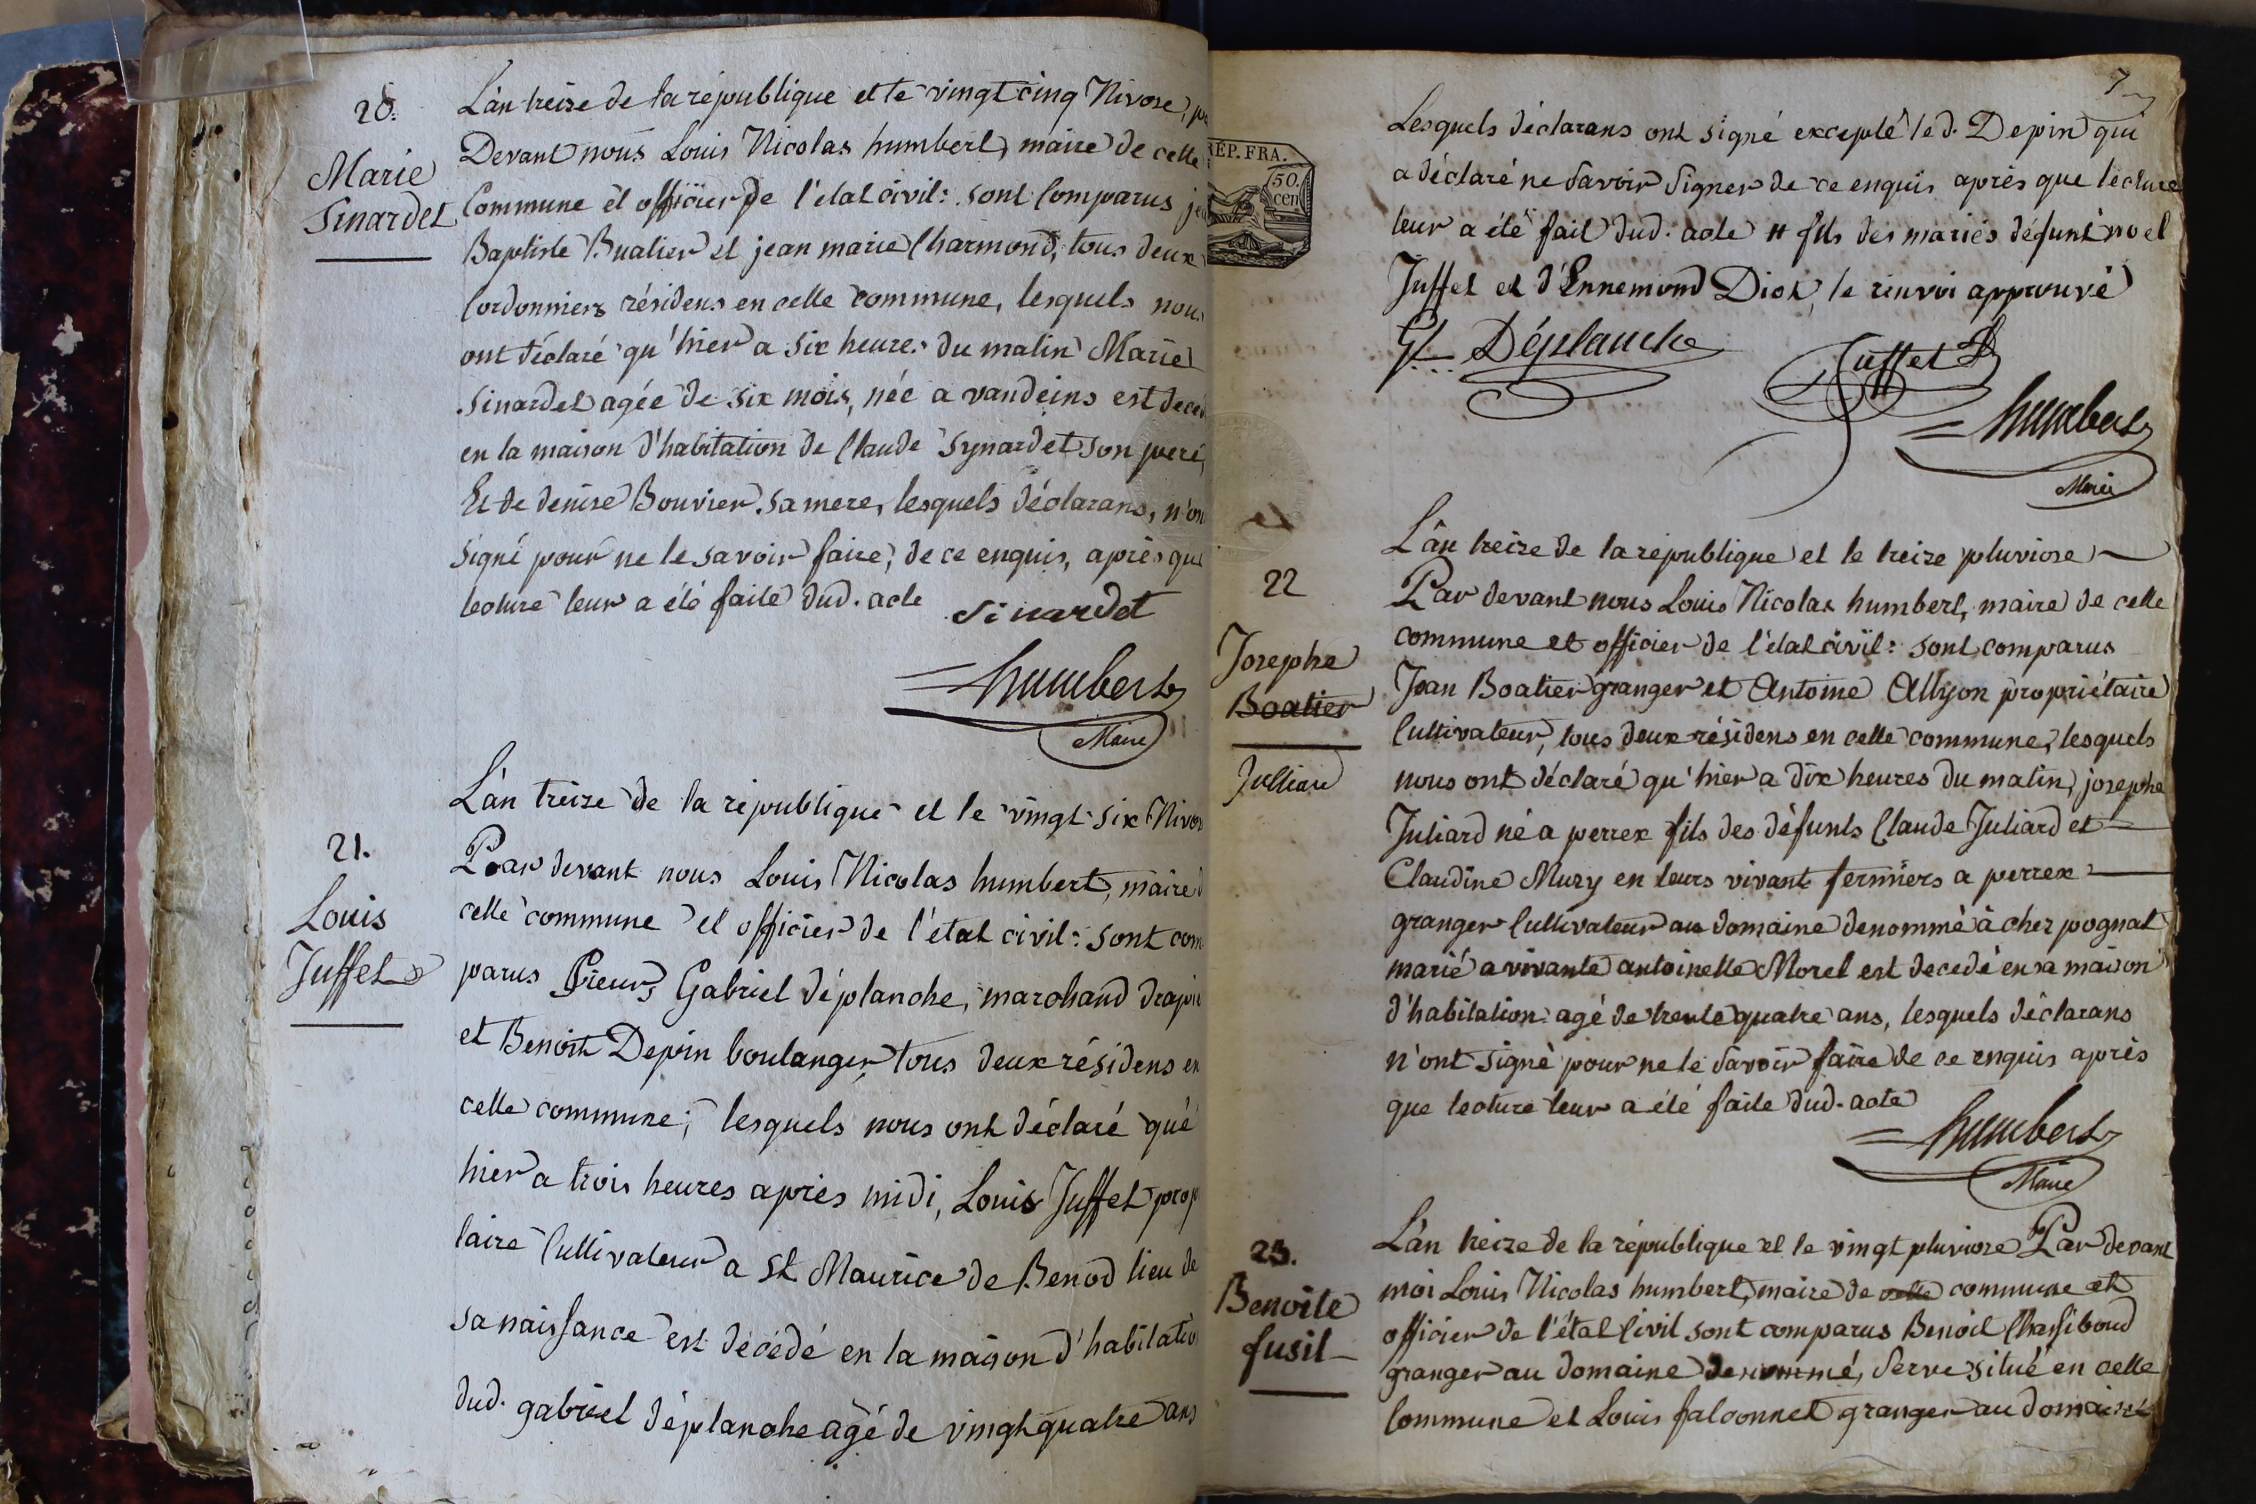 20.
Marie
Sinardet
L'an treize de la république et le vingt cinq Nivose,
Devant nous Louis Nicolas humbert, maire de cette
Commune et officier de l'état civil: sont Comparus
Baptiste Bualier et jean marie Charmond, tous deux
Cordonniers résidens en cette commune, lesquels nous
ont déclaré qu'hier a six heures du matin Marie
Sinardet agée de six mois, née a vandeins est deced
en la maison d'habitation de Claude Synardet son pere,
Et de denise Bouvier sa mere, lesquels déclarans, n'on
signé pour ne le savoir faire, de ce enquis, après que
lecture leur a été faite dud. acte
Sinardet
humbert
Maire
21.
Louis
Juffet
L'an treize de la république et le vingt six Nivos
Par devant nous Louis Nicolas humbert, maire d
cette commune et officier de l'état civil: sont com
parus Sieurs Gabriel déplanche, marchand drapie
et Benoit Depin boulanger tous deux résidens en
cette commune; lesquels nous ont déclaré que
hier a trois heures après midi, Louis Juffet prop
taire Cultivateur a St Maurice de Benod lieu de
sa naissance est décédé en la maison d'habitatio
dud. gabriel déplanche agé de vingt quatre ans
7
RÉP. FRA.
50.
cen
Lesquels déclarans ont signé excepté led. Depin qui
a déclaré ne savoir signer de ce enquis après que lecture
leur a été fait dud. acte # fils des mariés défunt noel
Juffet et d'Ennemond Diot, le rinvoi approuvé
G. Déplanche
Juffet
humbert
Maire
22
Josephe
Boatier
Julliard
L'an treize de la république et le treize pluviose
Par devant nous Louis Nicolas humbert, maire de cette
commune et officier de l'état civil: sont comparus
Jean Boatier granger et Antoine Allyon propriétaire
Cultivateur, tous deux résidens en cette commune, lesquels
nous ont déclaré qu'hier a dix heures du matin, josephe
Juliard né a perrex fils des défunts Claude Juliard et
Claudine Mury en leurs vivant fermiers a perrex
granger Cultivateur au domaine denommé à chez pognat
marié a vivante antoinette Morel est decedé en sa maison
d'habitation agé de trente quatre ans, lesquels déclarans
n'ont signé pour ne le savoir faire de ce enquis après
que lecture leur a été faite dud. acte
humbert
Maire
23.
Benoite
fusil
L'an treize de la république et le vingt pluviose Par devant
moi Louis Nicolas humbert, maire de cette commune et
officier de l'état Civil sont comparus Benoit Chassiboud
granger au domaine denommé, Serve situé en cette
Commune et Louis falconnet granger au domaine